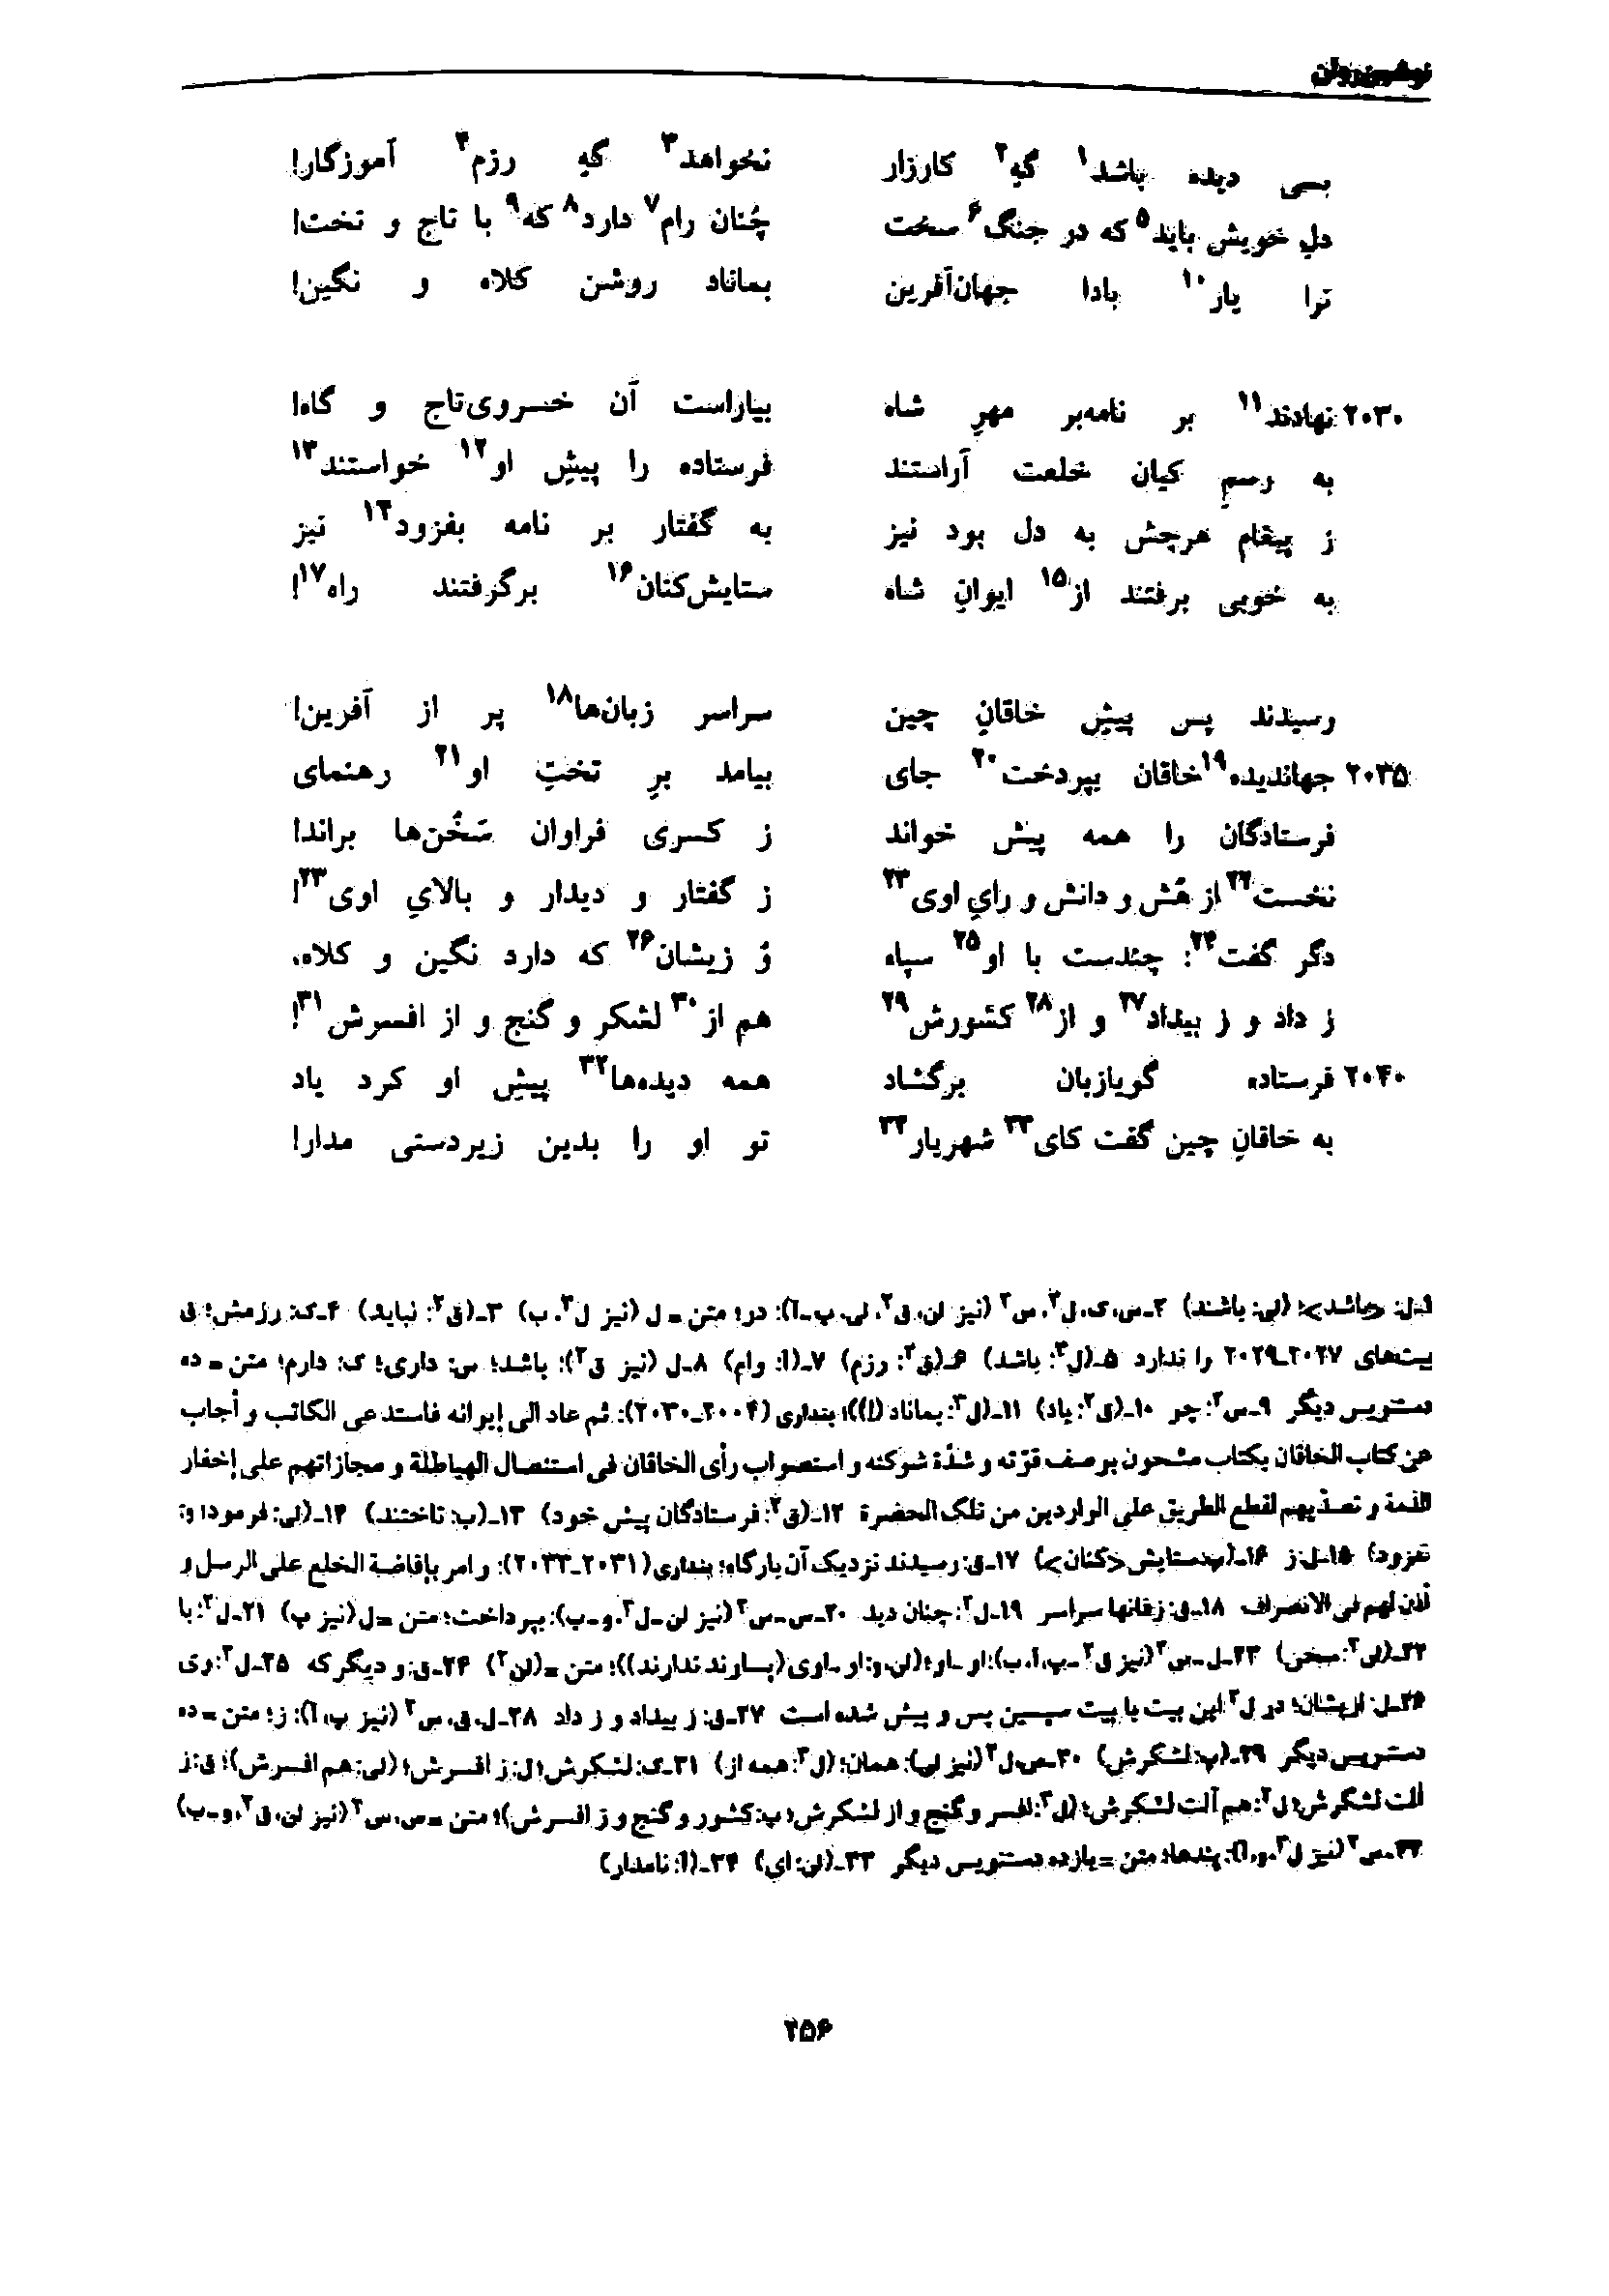 نوشین‌روان
بسی دیده باشد۱ گهِ۲ کارزار نخواهد۳ گهِ رزم۴ آموزگار!
دلِ خویش باید۵ که در جنگ۶ سخت چُنان رام۷ دارد۸ که۹ با تاج و تخت!
ترا یاز۱۰ بادا جهان‌آفرین بماناد روشن کلاه و نگین!
۲۰۳۰ نهادند۱۱ بر نامه‌بر مهرِ شاه بیاراست آن خسروی‌تاج و گاه!
به رسمِ کیان خلعت آراستند فرستاده را پیشِ او۱۲ خواستند۱۳
ز پیغام هرچش به دل بود نیز به گفتار بر نامه بفزود۱۴ نیز
به خوبی برفتند از۱۵ ایوانِ شاه ستایش‌کنان۱۶ برگرفتند راه۱۷!
رسیدند پس پیشِ خاقانِ چین سراسر زبان‌ها۱۸ پر از آفرین!
۲۰۳۵ جهاندیده۱۹ خاقان بپردخت۲۰ جای بیامد برِ تختِ او۲۱ رهنمای
فرستادگان را همه پیش خواند ز کسری فراوان سَخُن‌ها براند!
نخست۲۲ از هُش و دانش و رایِ اوی۲۳ ز گفتار و دیدار و بالایِ اوی۲۳!
دگر گفت۲۴: چندست با او۲۵ سپاه وُ زیشان۲۶ که دارد نگین و کلاه،
ز داد و ز بیداد۲۷ و از۲۸ کشورش۲۹ هم از۳۰ لشکر و گنج و از افسرش۳۱!
۲۰۴۰ فرستاده گویازبان برگشاد همه دیده‌ها۳۲ پیشِ او کرد یاد
به خاقانِ چین گفت کای۳۳ شهریار۳۴ تو او را بدین زیردستی مدار!
۱ـ ل: <باشد>؛ (لی: باشند) ۲ـ س، ک، ل۲، س۲ (نیز لن، ق۲، لی، پ-آ): در؛ متن = ل (نیز ل۳، ب) ۳ـ (ق۲: نیاید) ۴ـ ک: رزمش؛ ق
بیت‌های ۲۰۲۷ـ۲۰۲۹ را ندارد ۵ـ (ل۳: باشد) ۶ـ (ق۲: رزم) ۷ـ (آ: وام) ۸ـ ل (نیز ق۲): باشد؛ س: داری؛ ک: دارم؛ متن = ده
دستنویس دیگر ۹ـ س۲: جر ۱۰ـ (ق۲: یاد) ۱۱ـ (ل۳: بماناد (!))؛ بنداری (۲۰۰۴ـ۲۰۳۰): ثم عاد الی إیرانه فاستدعی الکاتب و أجاب
عن کتاب الخاقان بکتاب مشحون بوصف قوّته و شدّة شوکته و استصواب رأی الخاقان فی استئصال الهیاطلة و مجازاتهم علی إخفار
الذمة و تصدّیهم لقطع الطریق علی الواردین من تلک الحضرة ۱۲ـ (ق۲: فرستادگان پیش خود) ۱۳ـ (ب: تاختند) ۱۴ـ (لی: فرمود؛ و:
نفزود) ۱۵ـ ل: ز ۱۶ـ (پ: ستایش <کنان>) ۱۷ـ ق: رسیدند نزدیک آن بارگاه؛ بنداری (۲۰۳۱ـ۲۰۳۳): و امر بإفاضة الخلع علی الرسل و
أذن لهم فی الانصراف ۱۸ـ ق: زفانها سراسر ۱۹ـ ل۲: چنان دید ۲۰ـ س-س۲ (نیز لن-ل۳، و-ب): بپرداخت؛ متن = ل (نیز پ) ۲۱ـ ل۲: با
۲۲ـ (لی۲: سخن) ۲۳ـ ل-س۲ (نیز ق۲-پ، آ، ب): او-او؛ (لن، و: او-اوی (بساوند ندارند))؛ متن = (لن۲) ۲۴ـ ق: و دیگر که ۲۵ـ ل۲: وی
۲۶ـ ل: ازیشان؛ در ل۲ این بیت با بیت سپسین پس و پیش شده است ۲۷ـ ق: ز بیداد و ز داد ۲۸ـ ل، ق، س۲ (نیز پ، آ): ز؛ متن = ده
دستنویس دیگر ۲۹ـ (پ: لشکرش) ۳۰ـ س، ل۲ (نیز لی): همان؛ (ل۳: همه از) ۳۱ـ ک: لشکرش؛ ل: ز افسرش؛ (لی: هم افسرش)؛ ق: ز
آلت لشگرش؛ ل۲: هم آلت لشکرش؛ (ل۳: افسر و گنج و از لشکرش؛ پ: کشور و گنج و ز افسرش)؛ متن = س، س۲ (نیز لن، ق۲، و-ب)
۳۲ـ س۲ (نیز ل۳، و، آ): پندها؛ متن = یازده دستنویس دیگر ۳۳ـ (لن: ای) ۳۴ـ (آ: نامدار)
۲۵۶